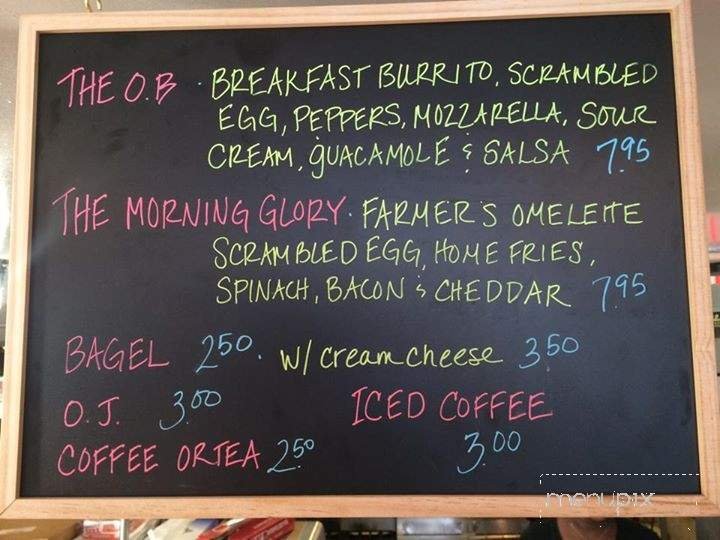 THE O.B · BREAKFAST BURRITO, SCRAMBLED
EGG, PEPPERS, MOZZARELLA, SOUR
CREAM, GUACAMOLE & SALSA 7.95
THE MORNING GLORY · FARMER'S OMELETTE
SCRAMBLED EGG, HOME FRIES,
SPINACH, BACON & CHEDDAR 7.95
BAGEL 2.50. w/ cream cheese 3.50
O.J. 3.00 ICED COFFEE
COFFEE OR TEA 2.50 3.00
menupix